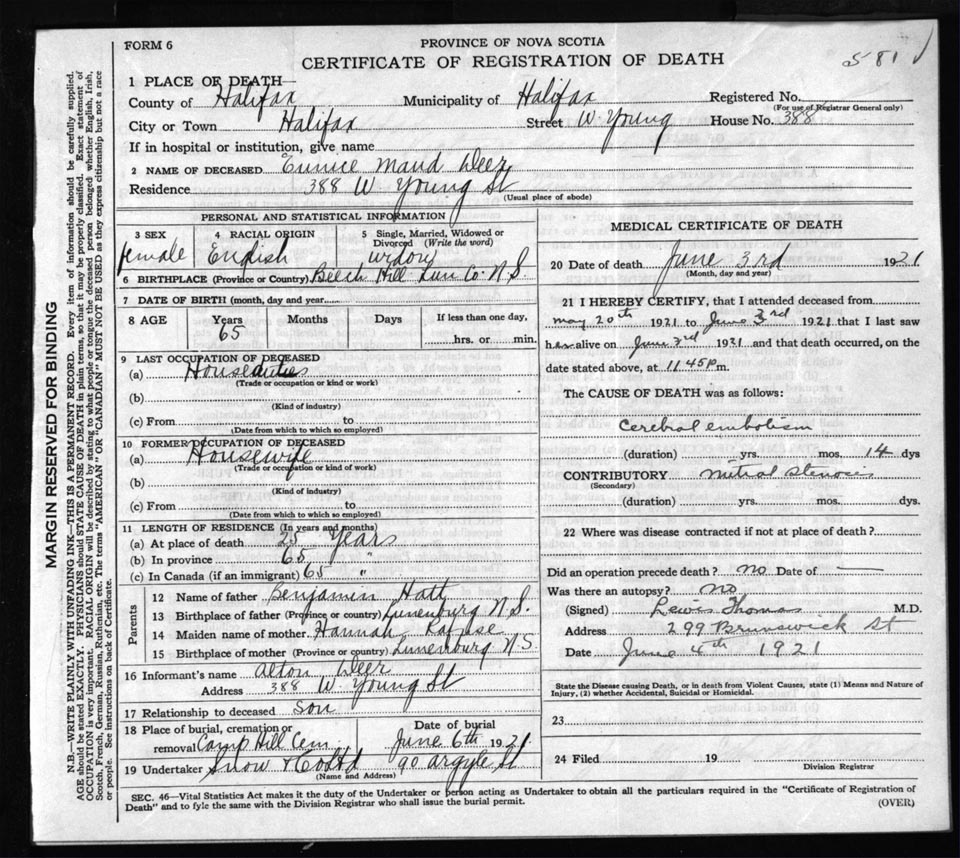 FORM 6
PROVINCE OF NOVA SCOTIA
CERTIFICATE OF REGISTRATION OF DEATH
581
1 PLACE OF DEATH
County of Halifax Municipality of Halifax Registered No.
(For use of Registrar General only)
City or Town Halifax Street W. Young House No. 388
If in hospital or institution, give name
2 NAME OF DECEASED Eunice Maud Deer
Residence 388 W. Young St
(Usual place of abode)
PERSONAL AND STATISTICAL INFORMATION
3 SEX 4 RACIAL ORIGIN 5 Single, Married, Widowed or Divorced (Write the word)
female English widow
6 BIRTHPLACE (Province or Country) Beech Hill Lun Co. N.S
7 DATE OF BIRTH (month, day and year)
8 AGE Years Months Days If less than one day,
65 hrs. or min.
9 LAST OCCUPATION OF DECEASED
(a) Houseduties
(Trade or occupation or kind or work)
(b)
(Kind of industry)
(c) From to
(Date from which to which so employed)
10 FORMER OCCUPATION OF DECEASED
(a) Housewife
(Trade or occupation or kind of work)
(b)
(Kind of industry)
(c) From to
(Date from which to which so employed)
11 LENGTH OF RESIDENCE (In years and months)
(a) At place of death 25 Years
(b) In province 65 "
(c) In Canada (if an immigrant) 65 "
Parents
12 Name of father Benjamin Hatt
13 Birthplace of father (Province or country) Lunenburg N.S.
14 Maiden name of mother Hannah
15 Birthplace of mother (Province or country) Lunenburg N.S.
16 Informant's name Alton Deer
Address 388 W. Young St
17 Relationship to deceased Son
18 Place of burial, cremation or removal Camp Hill Cem. Date of burial June 6th 1921
19 Undertaker Snow & Co Ltd 90 Argyle St
(Name and Address)
MEDICAL CERTIFICATE OF DEATH
20 Date of death June 3rd 1921
(Month, day and year)
21 I HEREBY CERTIFY, that I attended deceased from
May 20th 1921 to June 3rd 1921 that I last saw
her alive on June 3rd 1921 and that death occurred, on the
date stated above, at 11.45 p m.
The CAUSE OF DEATH was as follows:
Cerebral embolism
(duration) yrs. mos. 14 dys
CONTRIBUTORY Mitral Stenosis
(Secondary)
(duration) yrs. mos. dys.
22 Where was disease contracted if not at place of death?
Did an operation precede death? No Date of —
Was there an autopsy? No.
(Signed) Lewis Thomas M.D.
Address 299 Brunswick St
Date June 4th 1921
State the Disease causing Death, or in death from Violent Causes, state (1) Means and Nature of
Injury, (2) whether Accidental, Suicidal or Homicidal.
23
24 Filed 19
Division Registrar
SEC. 46—Vital Statistics Act makes it the duty of the Undertaker or person acting as Undertaker to obtain all the particulars required in the "Certificate of Registration of
Death" and to fyle the same with the Division Registrar who shall issue the burial permit.
(OVER)
MARGIN RESERVED FOR BINDING
N.B.—WRITE PLAINLY WITH UNFADING INK—THIS IS A PERMANENT RECORD. Every item of information should be carefully supplied.
AGE should be stated EXACTLY. PHYSICIANS should STATE CAUSE OF DEATH in plain terms, so that it may be properly classified. Exact statement of
OCCUPATION is very important. RACIAL ORIGIN will be described by stating to what people or tongue the deceased person belonged whether English, Irish,
Scotch, French, German, Russian, Ruthenian, etc. The terms "AMERICAN" OR "CANADIAN" MUST NOT BE USED as they express citizenship but not a race
or people. See instructions on back of Certificate.